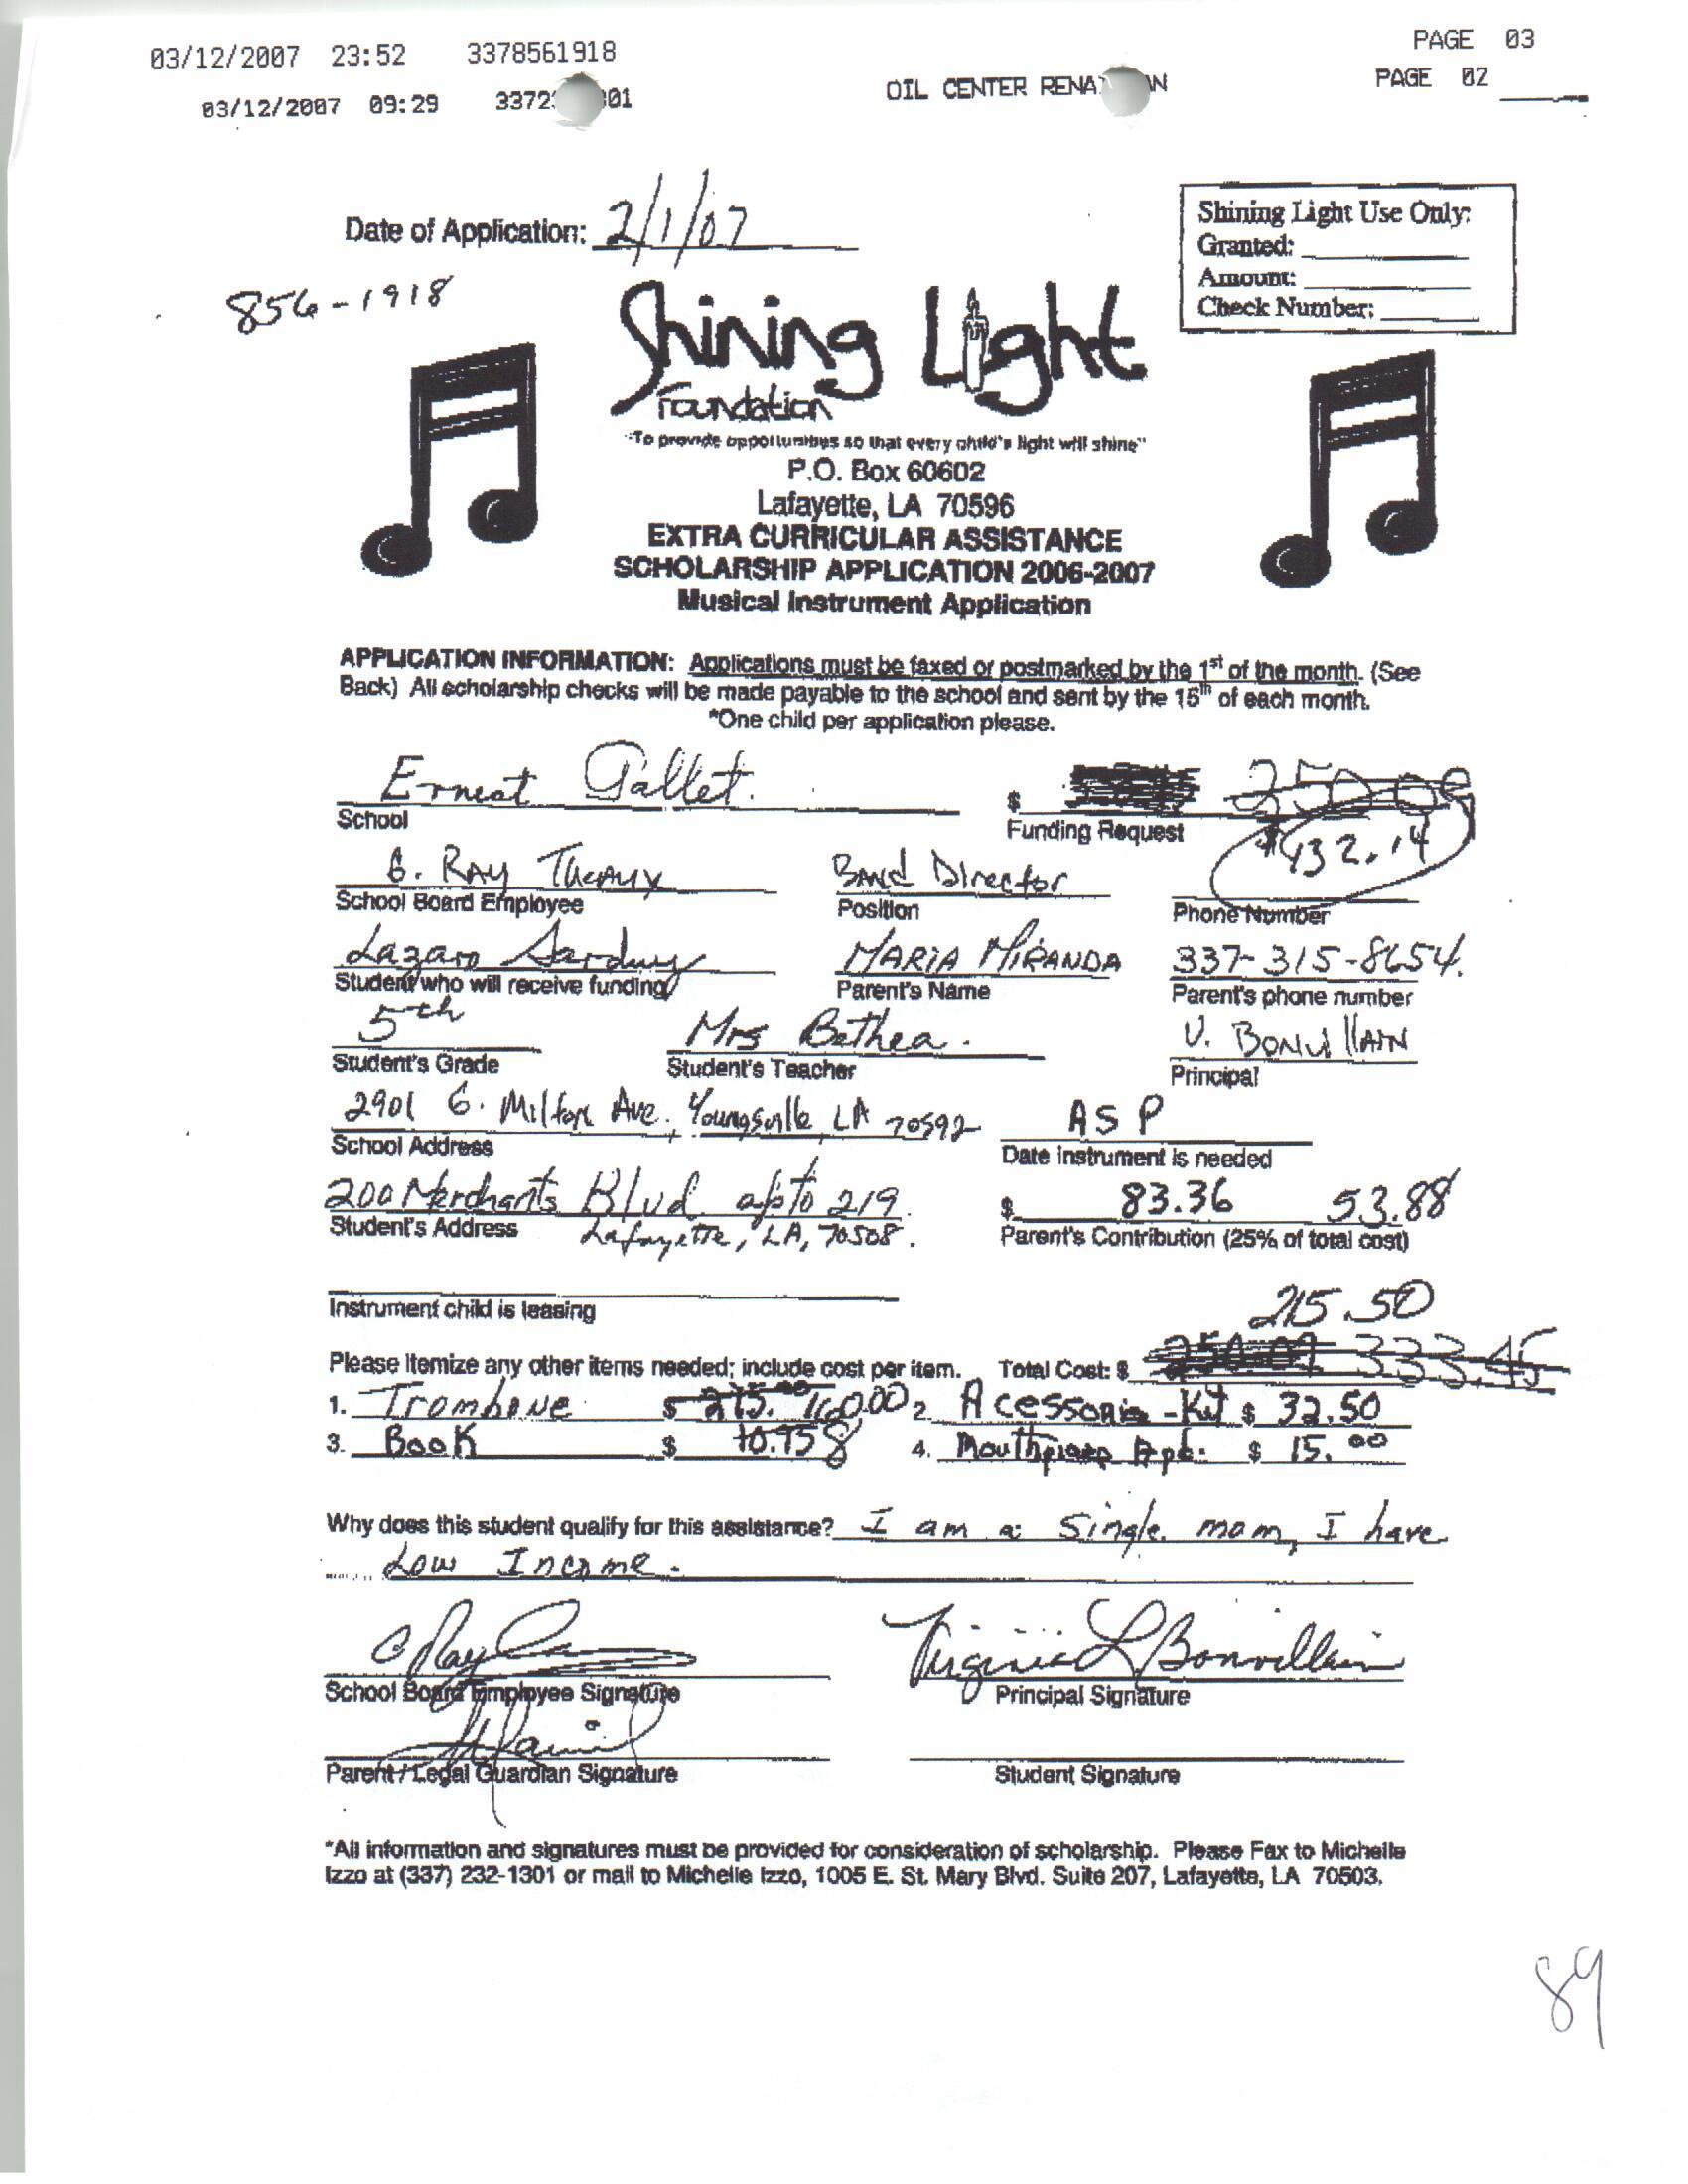 03/12/2007 23:52 3378561918 PAGE 03
03/12/2007 09:29 3372 301 OIL CENTER PAGE 02
Date of Application: 2/1/07
Shining Light Use Only:
Granted:
Amount:
Check Number:
856-1918
Shining Light
Foundation
"To provide opportunities so that every child's light will shine"
P.O. Box 60602
Lafayette, LA 70596
EXTRA CURRICULAR ASSISTANCE
SCHOLARSHIP APPLICATION 2006-2007
Musical Instrument Application
APPLICATION INFORMATION: Applications must be faxed or postmarked by the 1st of the month. (See
Back) All scholarship checks will be made payable to the school and sent by the 15th of each month.
*One child per application please.
Ernest Gallet. $
School Funding Request
G. RAY Theaux Band Director
School Board Employee Position Phone Number
Lazaro Sarduy MARIA MIRANDA 337-315-8654.
Student who will receive funding Parent's Name Parent's phone number
5th Mrs Bethea. V. BONVillAIN
Student's Grade Student's Teacher Principal
2901 E. Milton Ave. Youngsville, LA 70592 ASP
School Address Date instrument is needed
200 Merchants Blvd apto 219. $ 83.36 53.88
Student's Address Lafayette, LA, 70508. Parent's Contribution (25% of total cost)
Instrument child is leasing
215.50
Please itemize any other items needed; include cost per item. Total Cost: $ 333.45
1. Trombone $ 275.00 160.00 2. Acessories - Kit $ 32.50
3. Book $ 4. Mouthpiece $ 15.00
Why does this student qualify for this assistance? I am a single mom, I have
Low Income.
Virginia L Bonvillain
School Board Employee Signature Principal Signature
Parent / Legal Guardian Signature Student Signature
*All information and signatures must be provided for consideration of scholarship. Please Fax to Michelle
Izzo at (337) 232-1301 or mail to Michelle Izzo, 1005 E. St. Mary Blvd. Suite 207, Lafayette, LA 70503.
89